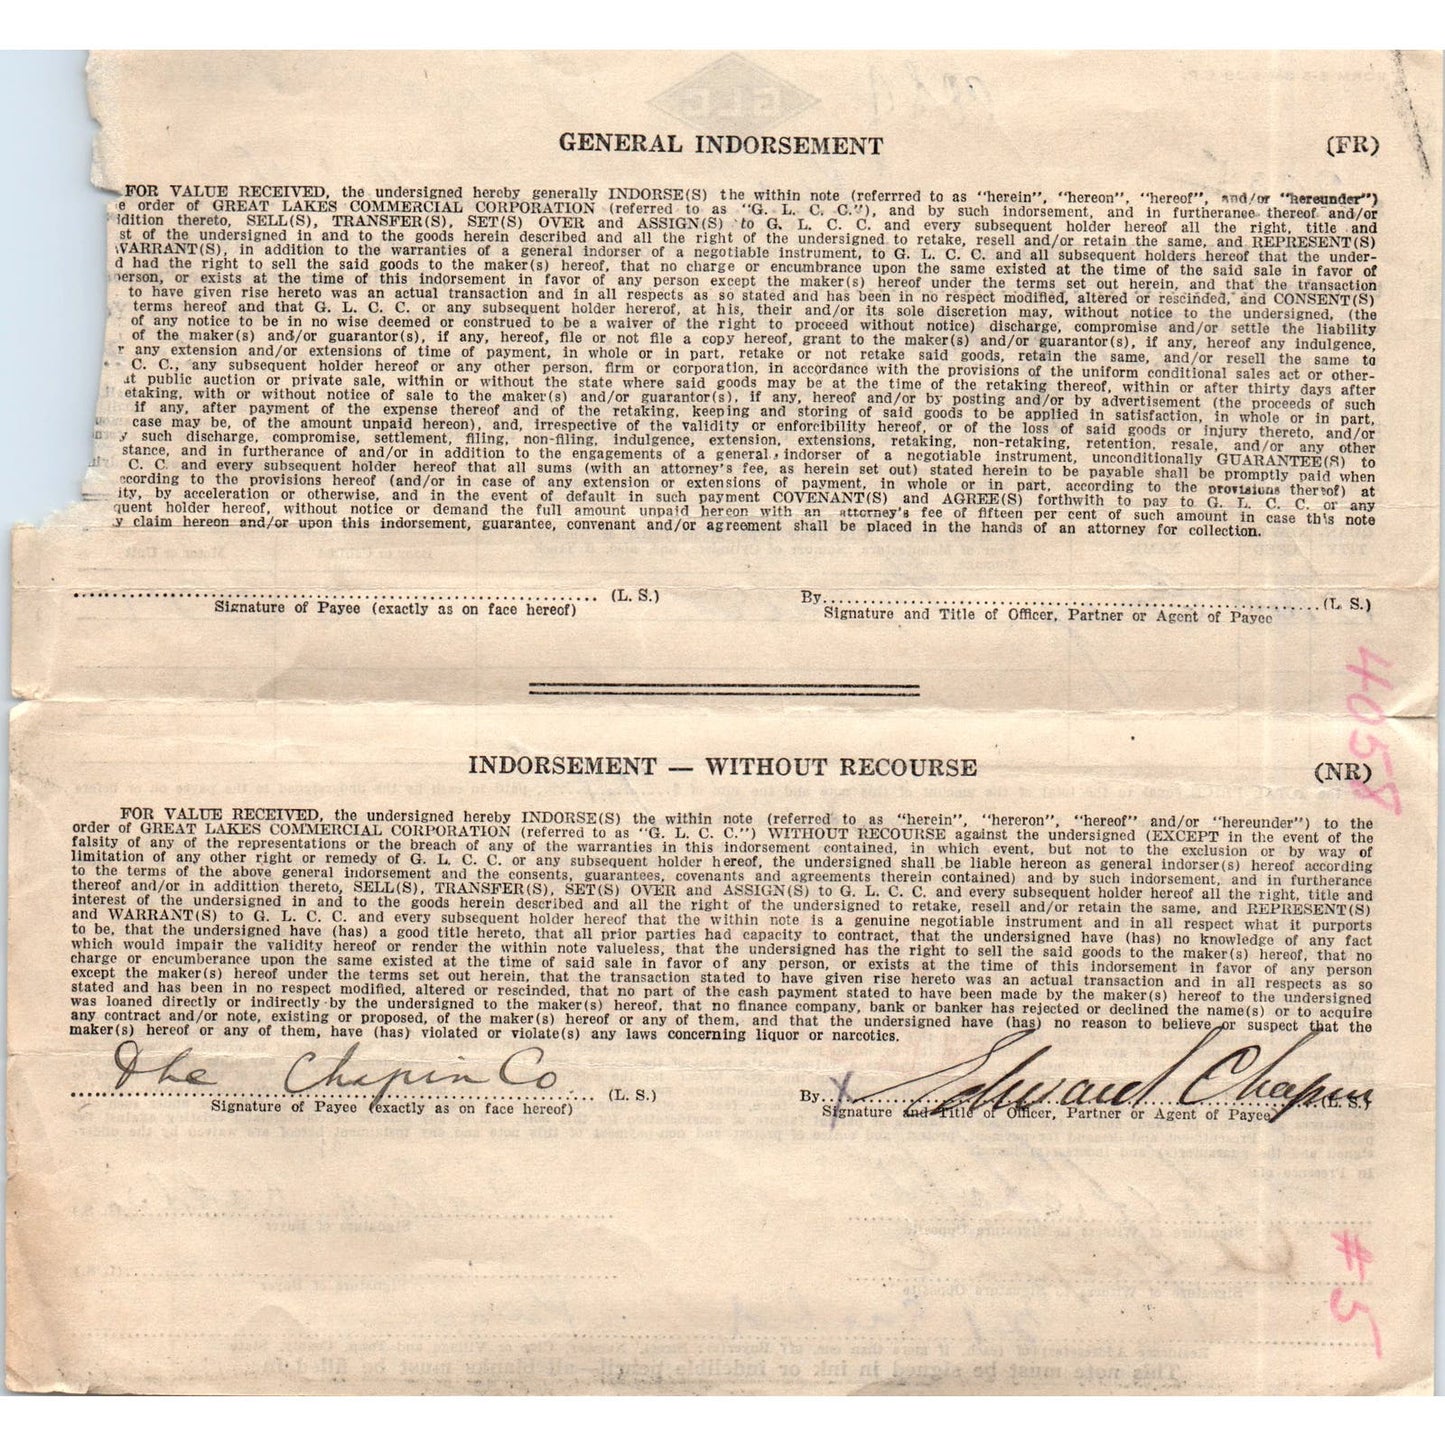 GENERAL INDORSEMENT (FR)
FOR VALUE RECEIVED, the undersigned hereby generally INDORSE(S) the within note (referrred to as "herein", "hereon", "hereof", and/or "hereunder")
e order of GREAT LAKES COMMERCIAL CORPORATION (referred to as "G. L. C. C."), and by such indorsement, and in furtherance thereof and/or
ddition thereto, SELL(S), TRANSFER(S), SET(S) OVER and ASSIGN(S) to G. L. C. C. and every subsequent holder hereof all the right, title and
st of the undersigned in and to the goods herein described and all the right of the undersigned to retake, resell and/or retain the same, and REPRESENT(S)
WARRANT(S), in addition to the warranties of a general indorser of a negotiable instrument, to G. L. C. C. and all subsequent holders hereof that the under-
d had the right to sell the said goods to the maker(s) hereof, that no charge or encumbrance upon the same existed at the time of the said sale in favor of
person, or exists at the time of this indorsement in favor of any person except the maker(s) hereof under the terms set out herein, and that the transaction
to have given rise hereto was an actual transaction and in all respects as so stated and has been in no respect modified, altered or rescinded, and CONSENT(S)
terms hereof and that G. L. C. C. or any subsequent holder hererof, at his, their and/or its sole discretion may, without notice to the undersigned, (the
of any notice to be in no wise deemed or construed to be a waiver of the right to proceed without notice) discharge, compromise and/or settle the liability
of the maker(s) and/or guarantor(s), if any, hereof, file or not file a copy hereof, grant to the maker(s) and/or guarantor(s), if any, hereof any indulgence,
r any extension and/or extensions of time of payment, in whole or in part, retake or not retake said goods, retain the same, and/or resell the same to
C. C., any subsequent holder hereof or any other person, firm or corporation, in accordance with the provisions of the uniform conditional sales act or other-
at public auction or private sale, within or without the state where said goods may be at the time of the retaking thereof, within or after thirty days after
etaking, with or without notice of sale to the maker(s) and/or guarantor(s), if any, hereof and/or by posting and/or by advertisement (the proceeds of such
if any, after payment of the expense thereof and of the retaking, keeping and storing of said goods to be applied in satisfaction, in whole or in part,
case may be, of the amount unpaid hereon), and, irrespective of the validity or enforcibility hereof, or of the loss of said goods or injury thereto, and/or
y such discharge, compromise, settlement, filing, non-filing, indulgence, extension, extensions, retaking, non-retaking, retention, resale, and/or any other
stance, and in furtherance of and/or in addition to the engagements of a general indorser of a negotiable instrument, unconditionally GUARANTEE(S) to
C. C. and every subsequent holder hereof that all sums (with an attorney's fee, as herein set out) stated herein to be payable shall be promptly paid when
ccording to the provisions hereof (and/or in case of any extension or extensions of payment, in whole or in part, according to the provisions thereof) at
ity, by acceleration or otherwise, and in the event of default in such payment COVENANT(S) and AGREE(S) forthwith to pay to G. L. C. C. or any
quent holder hereof, without notice or demand the full amount unpaid hereon with an attorney's fee of fifteen per cent of such amount in case this note
y claim hereon and/or upon this indorsement, guarantee, convenant and/or agreement shall be placed in the hands of an attorney for collection.
(L. S.) By (L. S.)
Signature of Payee (exactly as on face hereof) Signature and Title of Officer, Partner or Agent of Payee
4058
INDORSEMENT — WITHOUT RECOURSE (NR)
FOR VALUE RECEIVED, the undersigned hereby INDORSE(S) the within note (referred to as "herein", "hereron", "hereof" and/or "hereunder") to the
order of GREAT LAKES COMMERCIAL CORPORATION (referred to as "G. L. C. C.") WITHOUT RECOURSE against the undersigned (EXCEPT in the event of the
falsity of any of the representations or the breach of any of the warranties in this indorsement contained, in which event, but not to the exclusion or by way of
limitation of any other right or remedy of G. L. C. C. or any subsequent holder hereof, the undersigned shall be liable hereon as general indorser(s) hereof according
to the terms of the above general indorsement and the consents, guarantees, covenants and agreements therein contained) and by such indorsement, and in furtherance
thereof and/or in addittion thereto, SELL(S), TRANSFER(S), SET(S) OVER and ASSIGN(S) to G. L. C. C. and every subsequent holder hereof all the right, title and
interest of the undersigned in and to the goods herein described and all the right of the undersigned to retake, resell and/or retain the same, and REPRESENT(S)
and WARRANT(S) to G. L. C. C. and every subsequent holder hereof that the within note is a genuine negotiable instrument and in all respect what it purports
to be, that the undersigned have (has) a good title hereto, that all prior parties had capacity to contract, that the undersigned have (has) no knowledge of any fact
which would impair the validity hereof or render the within note valueless, that the undersigned has the right to sell the said goods to the maker(s) hereof, that no
charge or encumberance upon the same existed at the time of said sale in favor of any person, or exists at the time of this indorsement in favor of any person
except the maker(s) hereof under the terms set out herein, that the transaction stated to have given rise hereto was an actual transaction and in all respects as so
stated and has been in no respect modified, altered or rescinded, that no part of the cash payment stated to have been made by the maker(s) hereof to the undersigned
was loaned directly or indirectly by the undersigned to the maker(s) hereof, that no finance company, bank or banker has rejected or declined the name(s) or to acquire
any contract and/or note, existing or proposed, of the maker(s) hereof or any of them, and that the undersigned have (has) no reason to believe or suspect that the
maker(s) hereof or any of them, have (has) violated or violate(s) any laws concerning liquor or narcotics.
The Chapin Co (L. S.) By X Edward Chapin (L. S.)
Signature of Payee (exactly as on face hereof) Signature and Title of Officer, Partner or Agent of Payee
#5